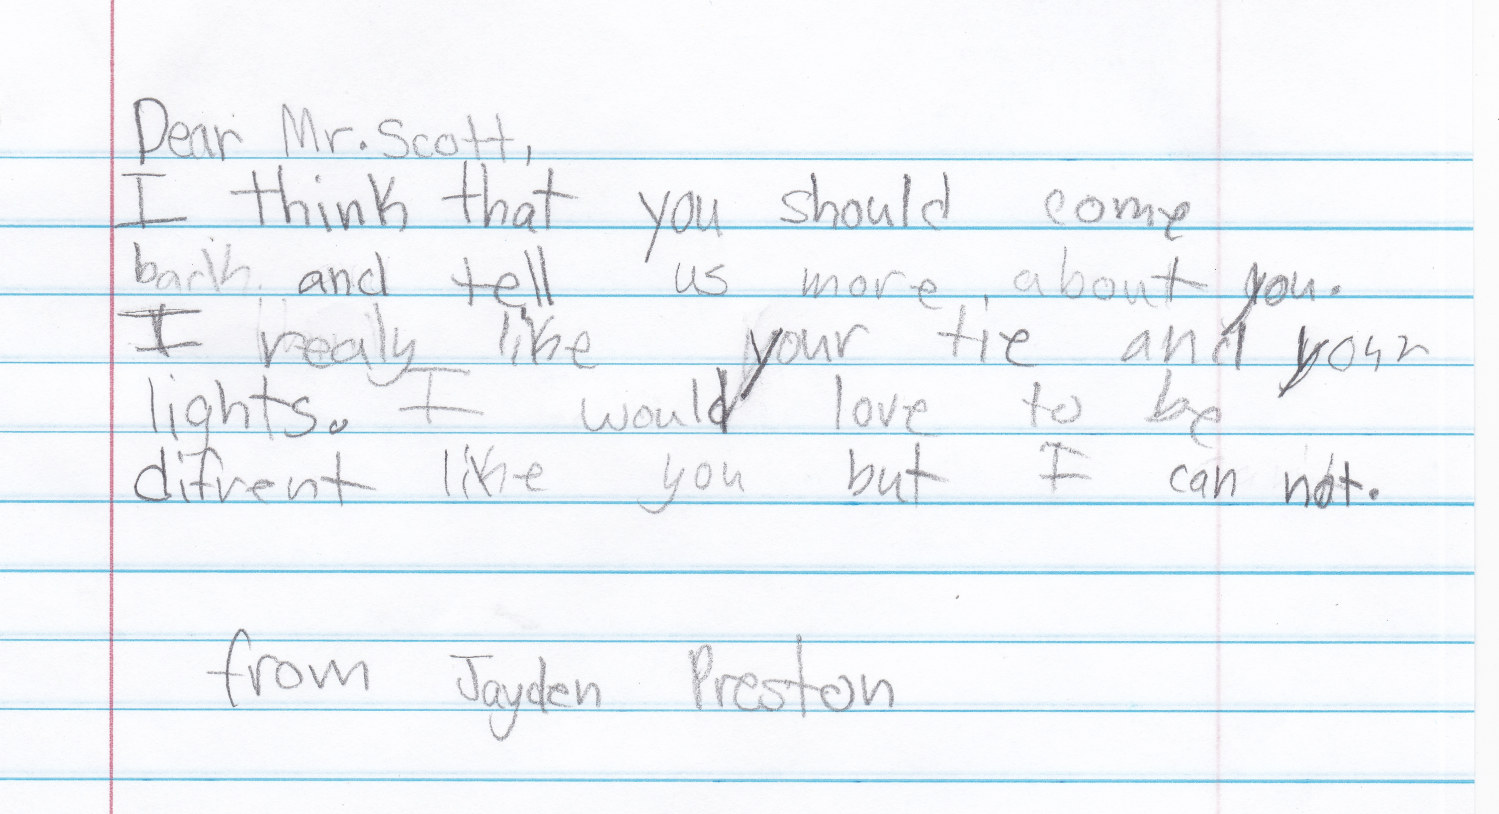 Dear Mr. Scott,
I think that you should come
back and tell us more about you.
I realy like your tie and your
lights. I would love to be
difrent like you but I can not.
from Jayden Preston